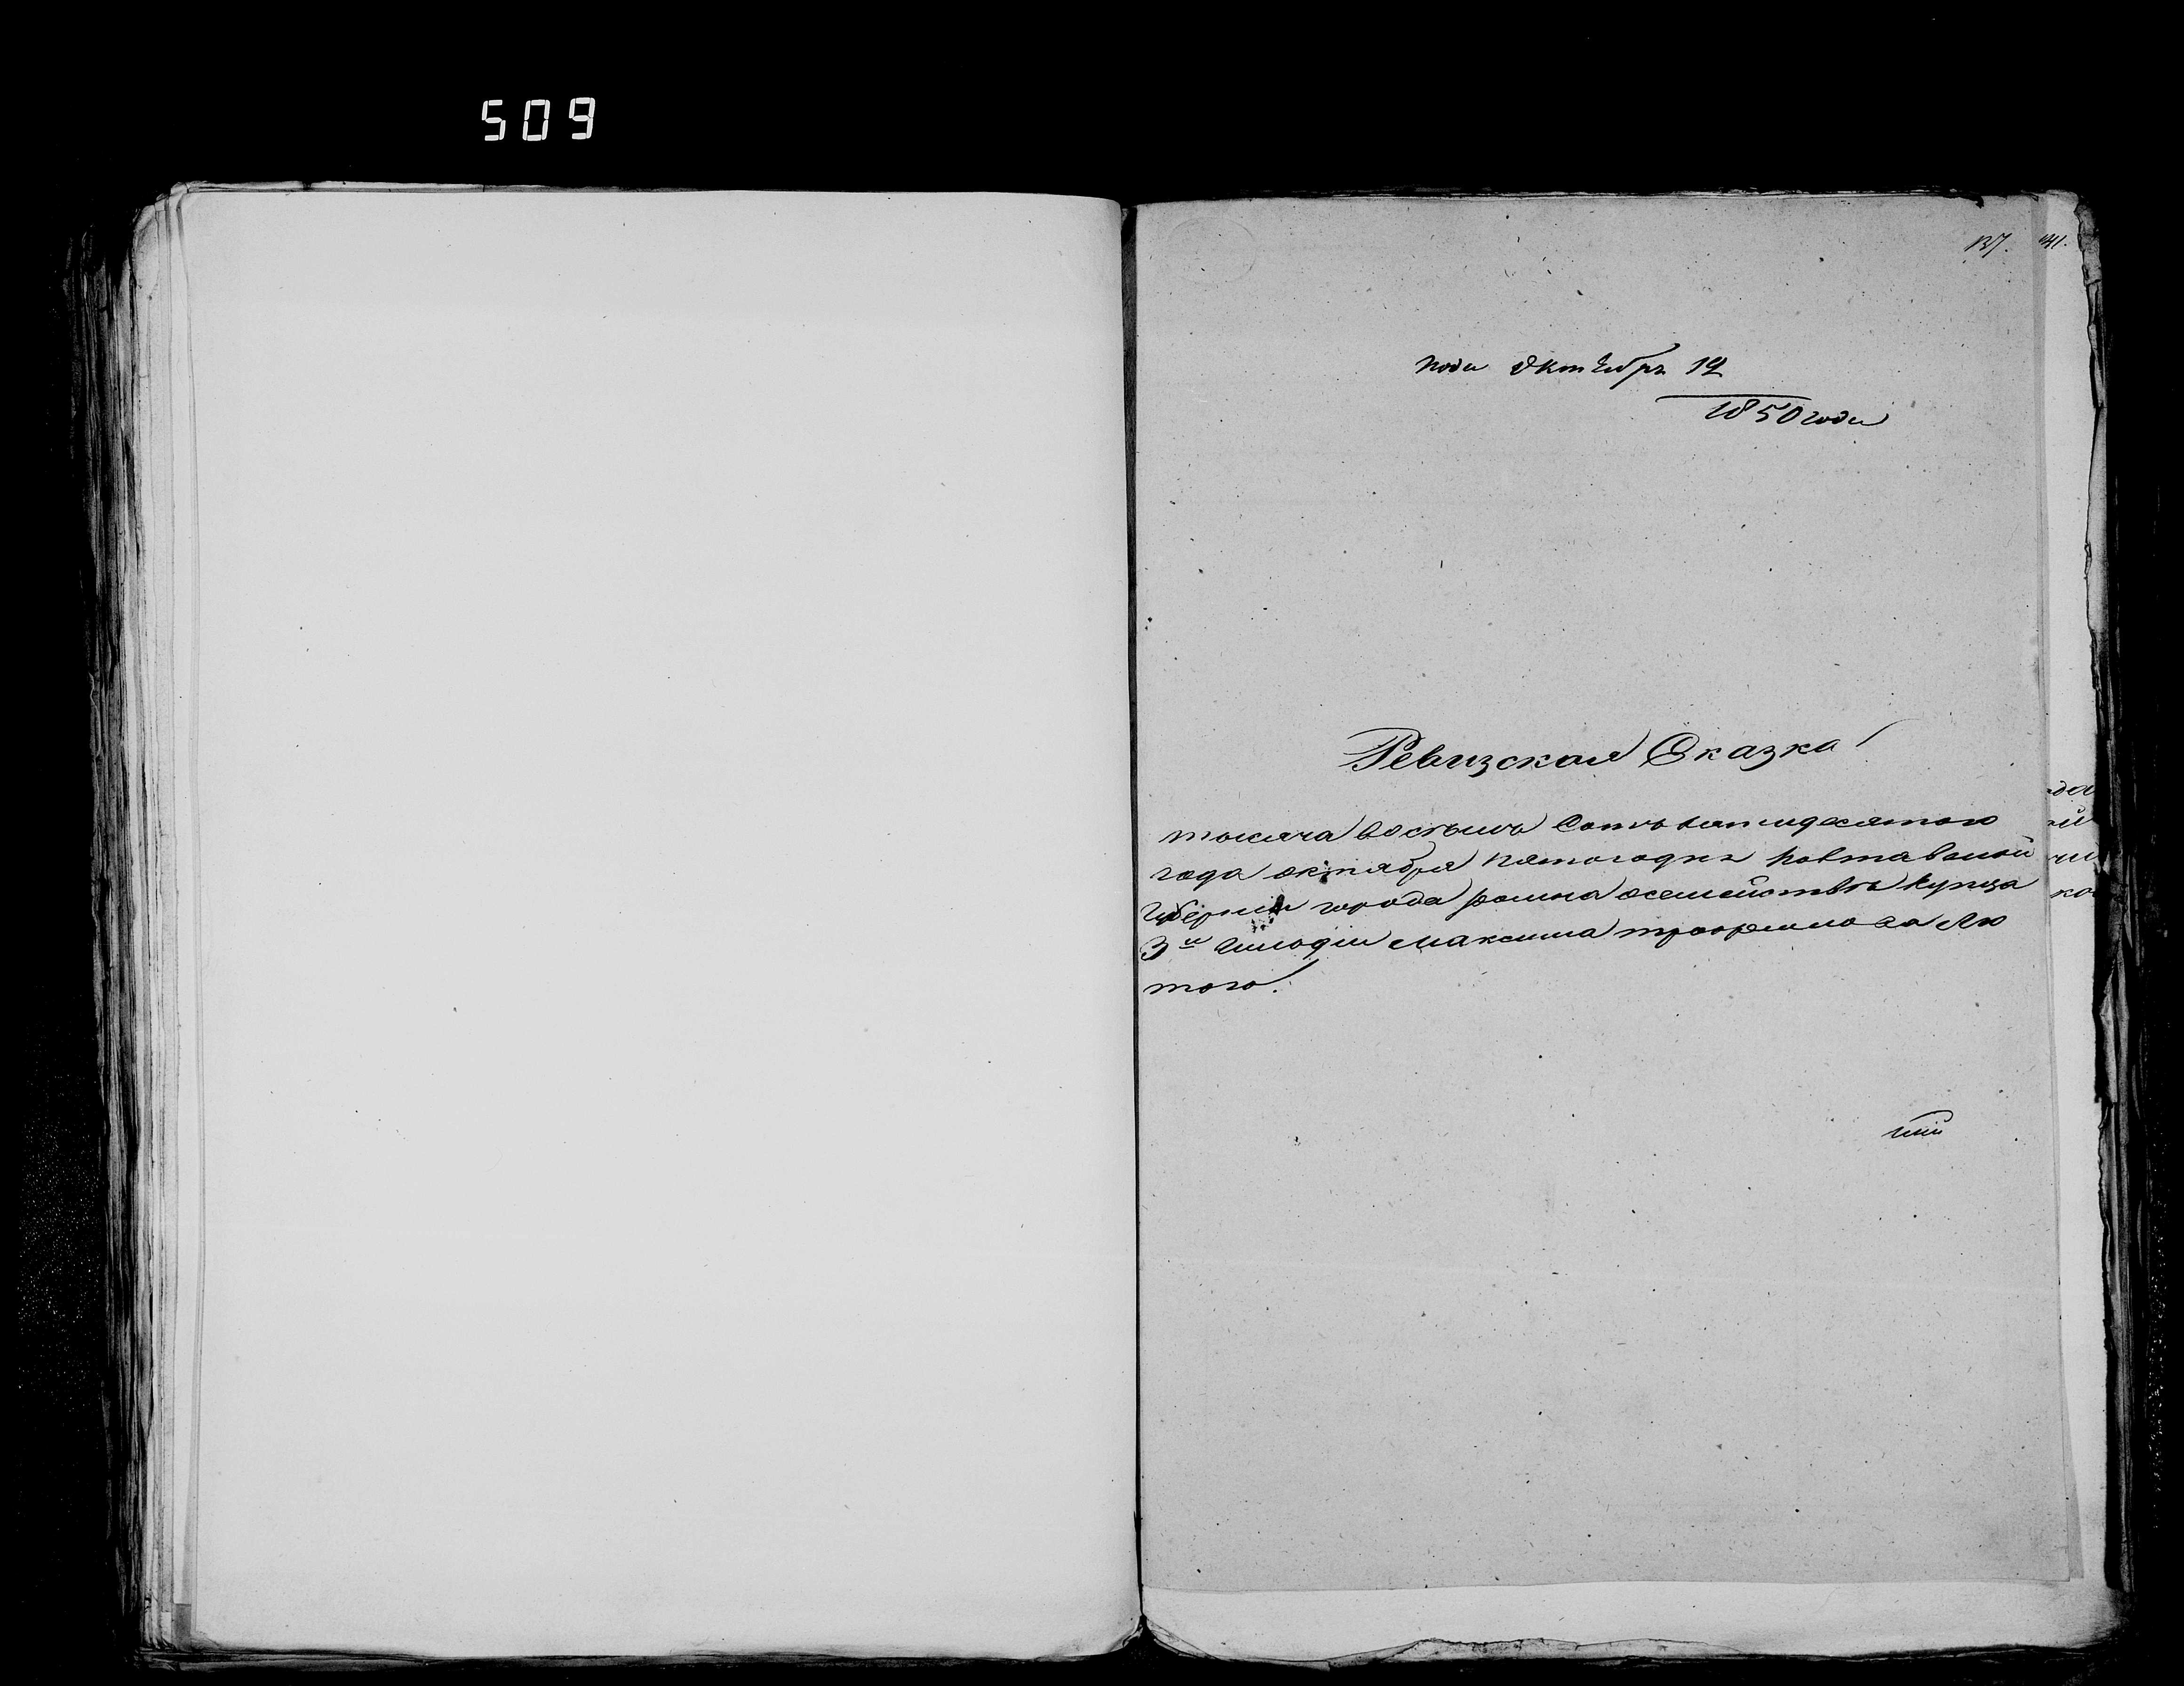 509
137. 141.
пода Октебря 12
1850 года
Ревизская Сказка
тысяча восемь Сотъ пятидесятого
года октября пятогодня полтавской
Губернии города ромна осемействѣ купца
3й Гилодіи максима трофимова Лю
того.